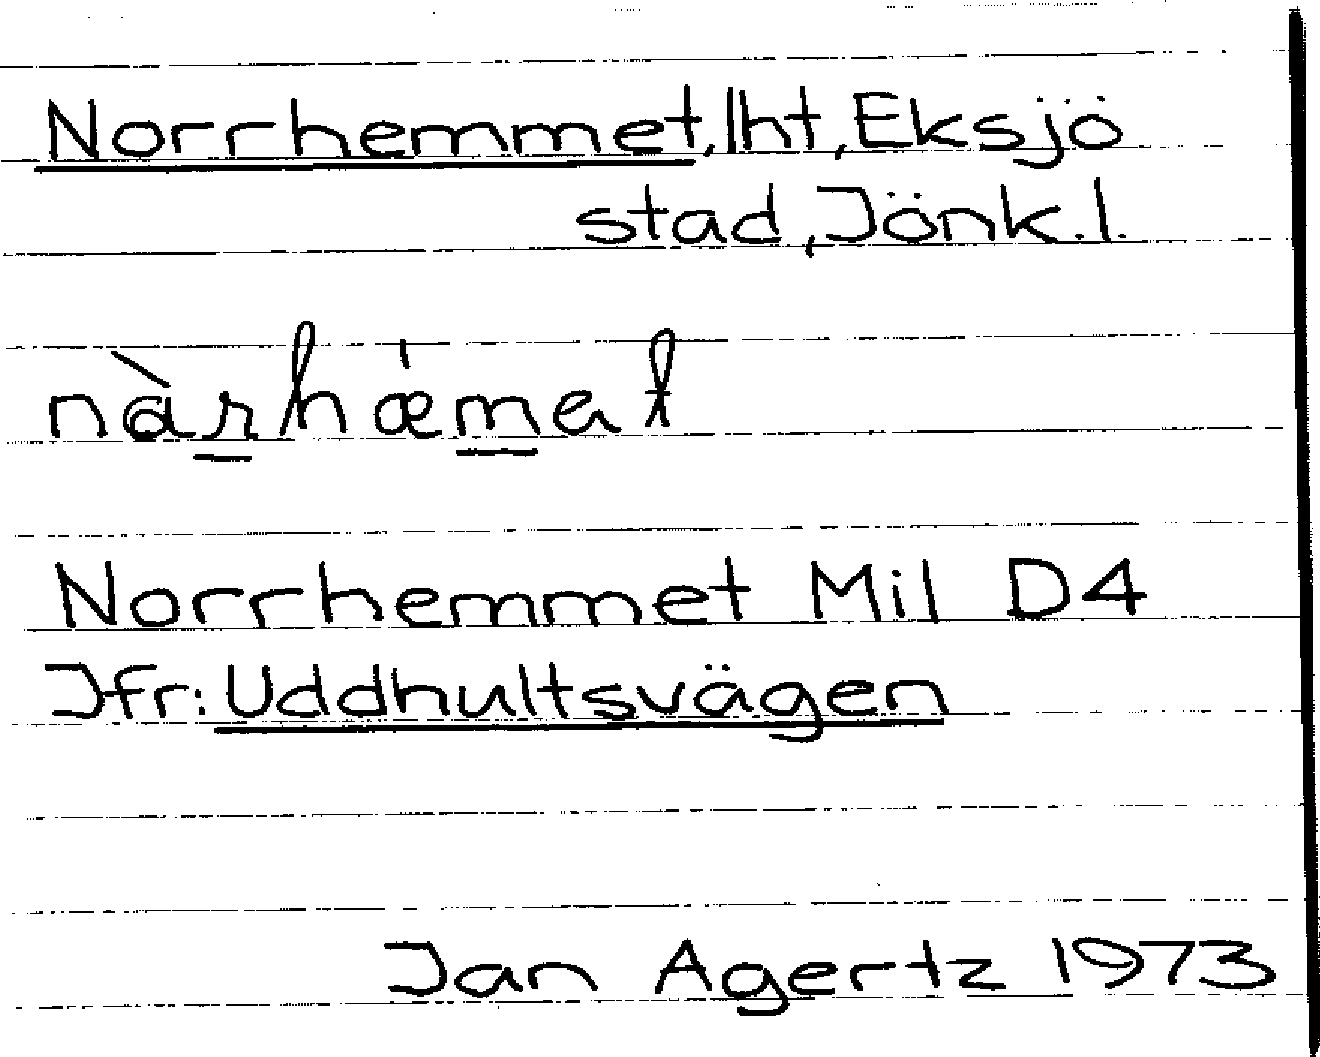 Norrhemmet, lht, Eksjö
stad, Jönk.l.
nàrhæ̇mat
Norrhemmet Mil D4
Jfr: Uddhultsvägen
Jan Agertz 1973